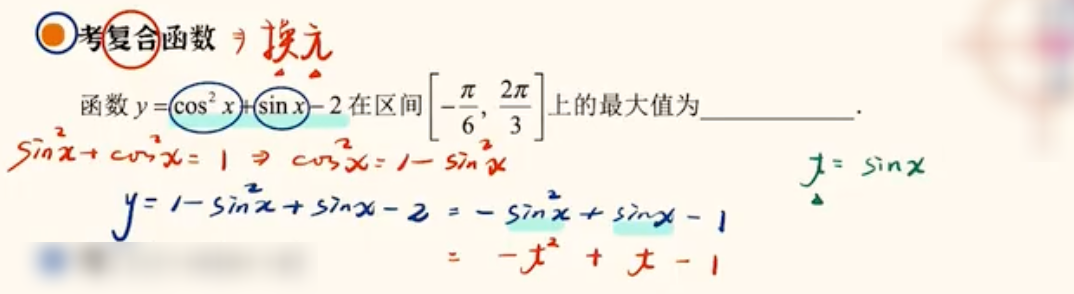 考复合函数 ⇒ 换元
函数 y = cos² x + sin x − 2 在区间 [−π/6, 2π/3] 上的最大值为____________.
sin²x + cos²x = 1 ⇒ cos²x = 1 − sin²x
t = sinx
y = 1 − sin²x + sinx − 2 = − sin²x + sinx − 1
= − t² + t − 1